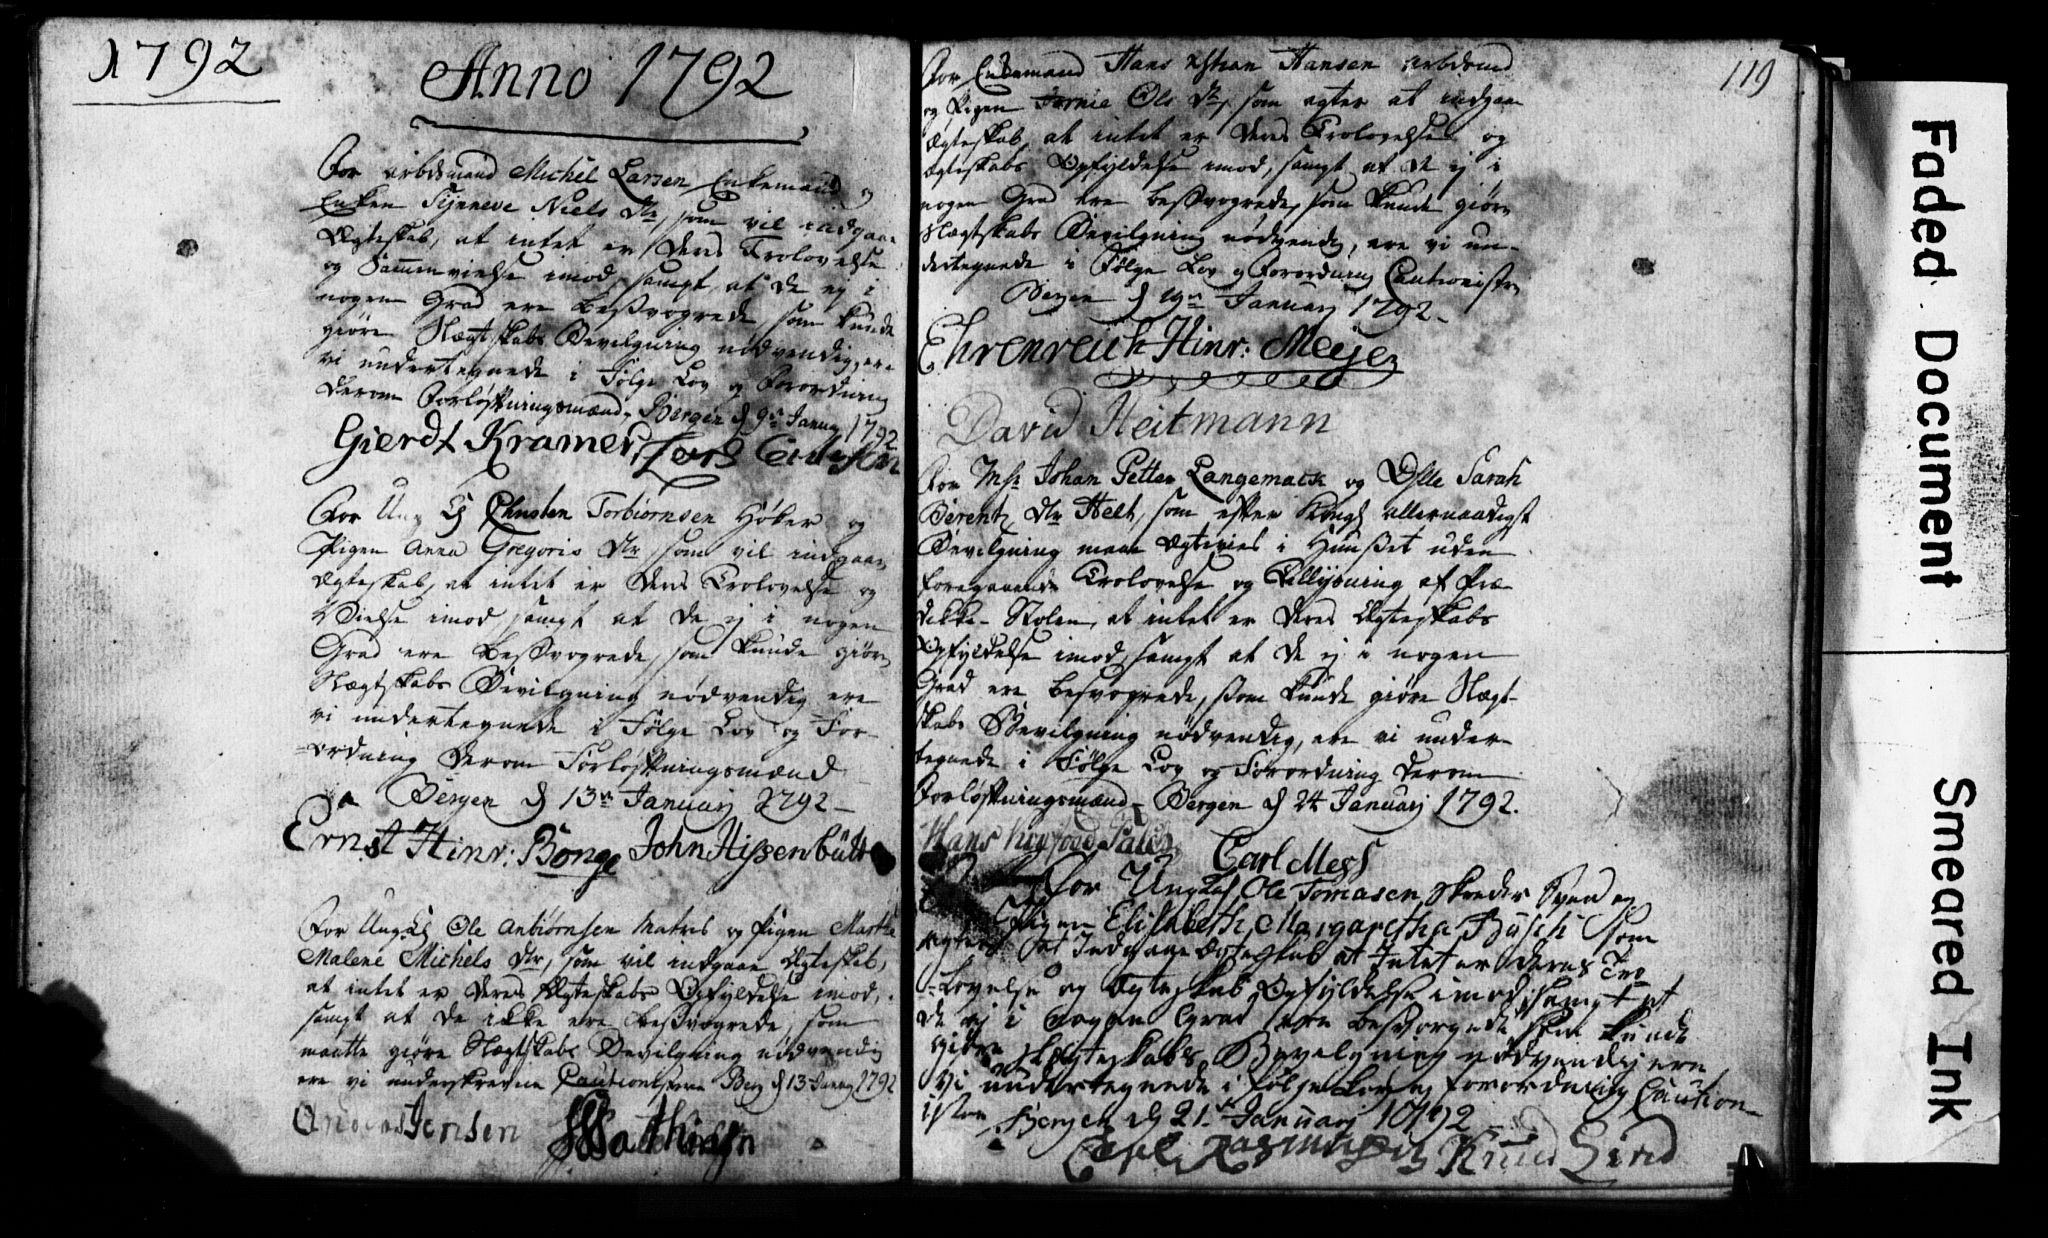 1792
Anno 1792
For arbdsmand Michel Larsen Enkemand og
Enken Synneve Niels Dtr, som vil indgaae
Ægteskab, at intet er Deres Trolovelse
og Sammenvielse imod, sampt at de ej i
nogen Grad ere beSvogrede, som kunde
giøre Slægtskabs Bevilgning nødvendig, ere
vi undertegnede i Følge Lov og Forordning
derom Forløftningsmænd, Bergen d 9n Januarj 1792
Gierdt Kramer, Lars
For Ung K Christen Torbiörnsen Høker og
Pigen Anna Gregoris Dtr, som vil indgaae
Ægteskab, at intet er Deres Trolovelse og
Vielse imod, sampt at de ej i nogen
Grad ere beSvogrede, som kunde giøre
Slægtskabs Bevilgning nødvendig ere
vi undertegnede i Følge Lov og For-
ordning derom Forløftningsmænd
Bergen d 13n Januarj 1792
Ernst Hinr: Bonge John Hissenbütt
For Ung K Ole Anbiørnsen Matros og Pigen Marthe
Malene Michels Dtr, som vil indgaae Ægteskab,
at intet er Deres Ægteskabs Opfyldelse imod,
sampt at de ikke ere beSvogrede, som
maatte giøre Slægtskabs Bevilgning nødvendig
ere vi underskrevne Cautionister Berg d 13 Janrj 1792
Jensen Mathiesen
119
For Enkemand Hans Hansen arbdsmd
og Pigen Ols Dtr, som agter at indgaae
Ægteskab, at intet er Deres Trolovelse og
Ægteskabs Opfyldelse imod, sampt at de ej i
nogen Grad ere beSvogrede, som kunde giøre
Slægtskabs Bevilgning nødvendig, ere vi un-
dertegnede i Følge Lov og Forordning Cautionister
Bergen d 19n Januarj 1792
Ehrenreich Hinr: Meyer
David Heitmann
For Msr Johan Petter Langemack og Sarah
Berentz Dtr Helt, som efter Kongl allernaadigst
Bevilgning maae Ægtevies i Huuset uden
foregaaende Trolovelse og Tillysning af Præ-
dikke-Stolen, at intet er Deres Ægteskabs
Opfyldelse imod, sampt at de ej i nogen
Grad ere besvogrede, som kunde giøre Slægt-
skabs Bevilgning nødvendig, ere vi under-
tegnede i Følge Lov og Forordning derom
Forløftningsmænd, Bergen d 24 Januarj 1792.
Hans Carl Mess
For Ung Ole Tomasen Skreder Svend og
Pigen Elisabeth Margaretha Busch som
agter at Indgaae Ægteskab at Intet er deres Tro-
Lovelse og Ægteskab Opfyldelse imod, sampt at
de ej i nogen Grad ere besvogrede som kunde
giøre Slegteskabs Bevelgning nødvendig ere
vi undertegnede i følge Lov og forordning Caution-
ister Bergen d 21 Januarj 1792
Rasmusen Knud Lind
Faded Document
Smeared Ink